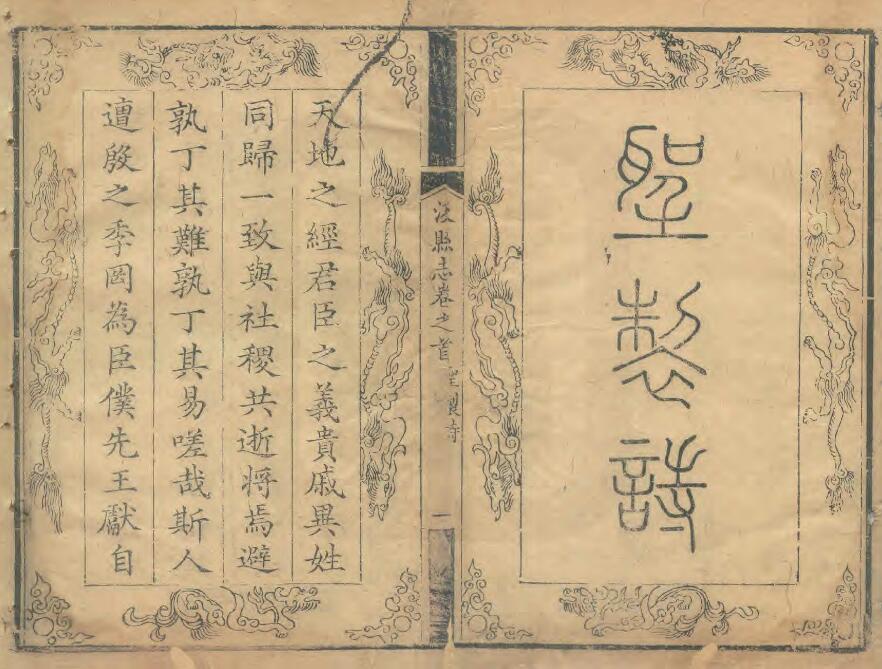 聖製詩
浚縣志卷之首
聖製詩
一
天地之經君臣之義貴戚異姓
同歸一致與社稷共逝將焉避
孰丁其難孰丁其易嗟哉斯人
遭殷之季罔為臣僕先王獻自